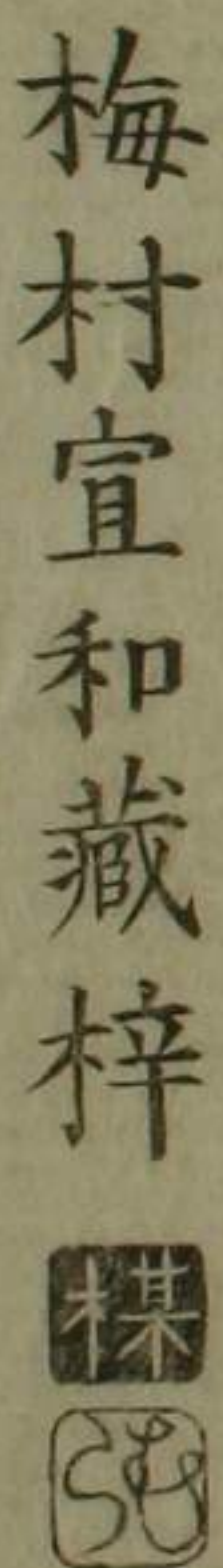 梅村宜和藏梓
楳